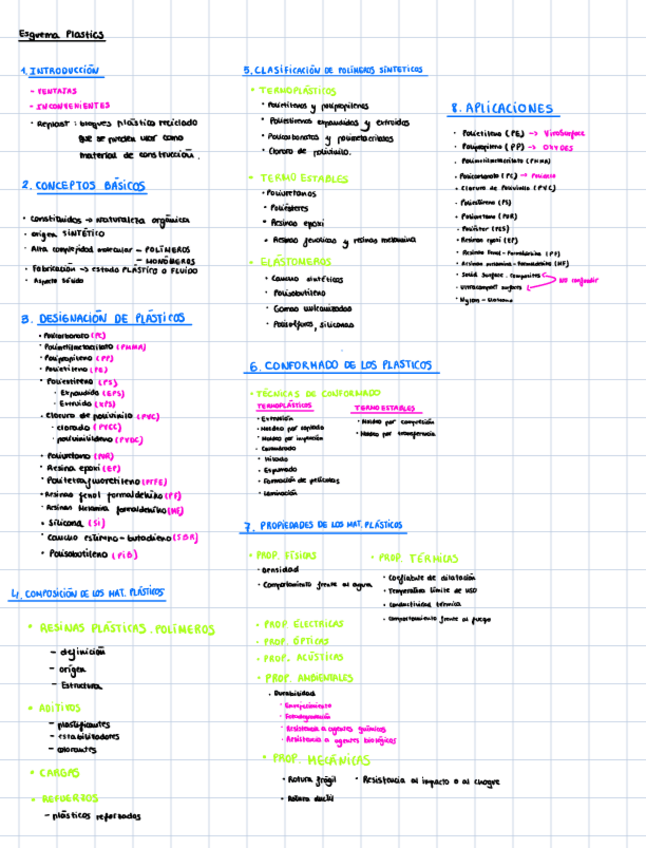 Esquema Plastics
1. INTRODUCCIÓN
- VENTAJAS
- INCONVENIENTES
• Replast: bloques plástico reciclado
que se pueden usar como
material de construcción.
2. CONCEPTOS BÁSICOS
• constituidos → naturaleza orgánica
• origen SINTÉTICO
• Alta complejidad molecular - POLÍMEROS
- MONÓMEROS
• Fabricación → estado PLÁSTICO o FLUIDO
• Aspecto sólido
3. DESIGNACIÓN DE PLÁSTICOS
• Policarbonato (PC)
• Polimetilmetacrilato (PMMA)
• Polipropileno (PP)
• Polietileno (PE)
• Poliestireno (PS)
• Expandido (EPS)
• Extruido (XPS)
• Cloruro de polivinilo (PVC)
• clorado (PVCC)
• polivinilideno (PVDC)
• Poliuretano (PUR)
• Resina epoxi (EP)
• Politetrafluoretileno (PTFE)
• Resinas fenol formaldehído (PF)
• Resinas Melamina formaldehído (MF)
• Silicona (SI)
• Caucho estireno-butadieno (SBR)
• Poliisobutileno (PIB)
4. COMPOSICIÓN DE LOS MAT. PLÁSTICOS
• RESINAS PLÁSTICAS. POLÍMEROS
- definición
- origen
- Estructura
• ADITIVOS
- plastificantes
- estabilizadores
- colorantes
• CARGAS
• REFUERZOS
- plásticos reforzados
5. CLASIFICACIÓN DE POLÍMEROS SINTÉTICOS
• TERMOPLÁSTICOS
• Polietilenos y polipropilenos
• Poliestirenos expandidos y extruidos
• Policarbonatos y polimetacrilatos
• Cloruro de polivinilo.
• TERMO ESTABLES
• Poliuretanos
• Poliésteres
• Resinas epoxi
• Resinas fenólicas y resinas melamina
• ELASTÓMEROS
• Caucho sintéticos
• Poliisobutileno
• Gomas vulcanizadas
• Polisulfuros, siliconas
6. CONFORMADO DE LOS PLASTICOS
• TÉCNICAS DE CONFORMADO
TERMOPLÁSTICOS
• Extrusión
• Moldeo por soplado
• Moldeo por inyección
• Calandrado
• Hilado
• Espumado
• Formación de películas
• Laminación
TERMO ESTABLES
• Moldeo por compresión
• Moldeo por transferencia
7. PROPIEDADES DE LOS MAT. PLÁSTICOS
• PROP. FÍSICAS
• Densidad
• Comportamiento frente al agua
• PROP. TÉRMICAS
• Coeficiente de dilatación
• Temperatura límite de uso
• conductividad térmica
• comportamiento frente al fuego
• PROP ELÉCTRICAS
• PROP. ÓPTICAS
• PROP. ACÚSTICAS
• PROP. AMBIENTALES
• Durabilidad
• Envejecimiento
• Fotodegradación
• Resistencia a agentes químicos
• Resistencia a agentes biológicos
• PROP. MECÁNICAS
• Rotura frágil
• Resistencia al impacto o al choque
• Rotura dúctil
8. APLICACIONES
• Polietileno (PE) →
• Polipropileno (PP) →
• Polimetilmetacrilato (PMMA)
• Policarbonato (PC) →
• Cloruro de Polivinilo (PVC)
• Poliestireno (PS)
• Poliuretano (PUR)
• Poliéster (PES)
• Resinas epoxi (EP)
• Resina fenol-formaldehído (PF)
• Resinas melamina-formaldehído (MF)
• Solid Surface. Composites
• Ultracompact surfaces
NO confundir